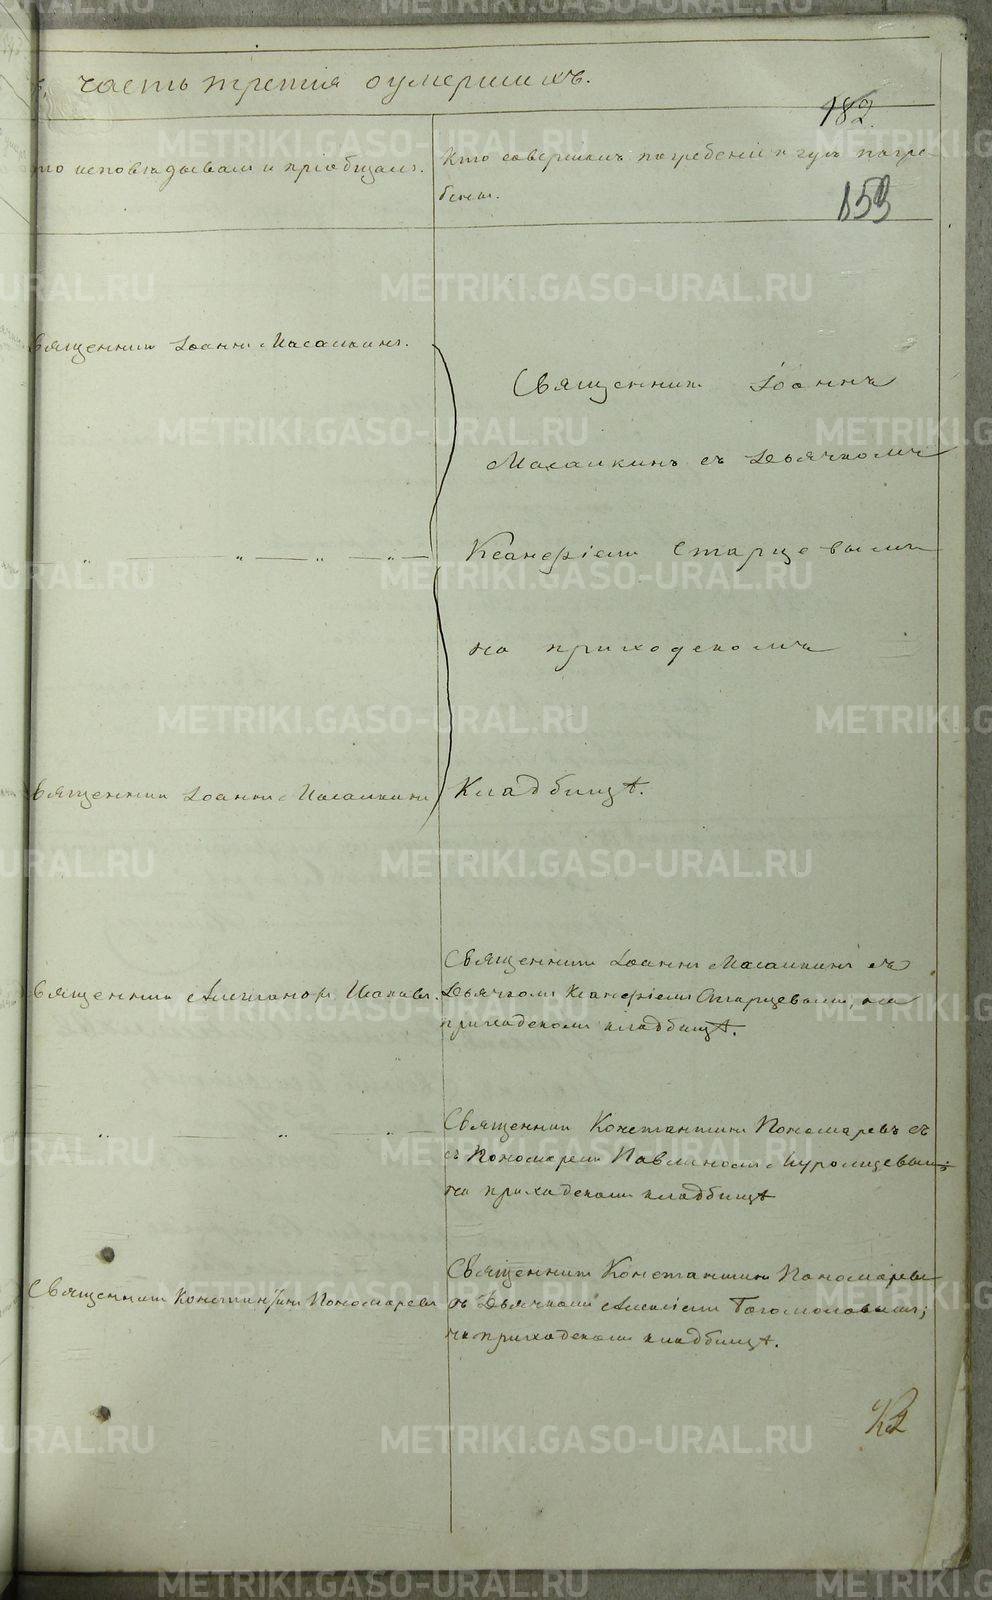 часть третія о умершихъ.
182
то исповѣдывалъ и пріобщалъ.
Кто совершалъ погребеніе и гдѣ погре-
бены.
153
Священникъ Іоаннъ Масалкинъ.
Священникъ Іоаннъ
Масалкинъ съ Дьячкомъ
" — " — " — " —
Ксанѳіемъ Старцевымъ
на приходскомъ
Священникъ Іоаннъ Масалкинъ
Кладбищѣ.
Священникъ Іоаннъ Масалкинъ съ
Священникъ Александръ
Дьячкомъ Ксанѳіемъ Старцевымъ, на
приходскомъ кладбищѣ.
Священникъ Константинъ Пономаревъ съ
— " — " — " —
съ Пономаремъ Павлиномъ
на приходскомъ кладбищѣ
Священникъ Константинъ Пономаревъ
Священникъ Константинъ Пономаревъ
съ Дьячкомъ Алексіемъ Богомоловымъ;
на приходскомъ кладбищѣ.
METRIKI.GASO-URAL.RU